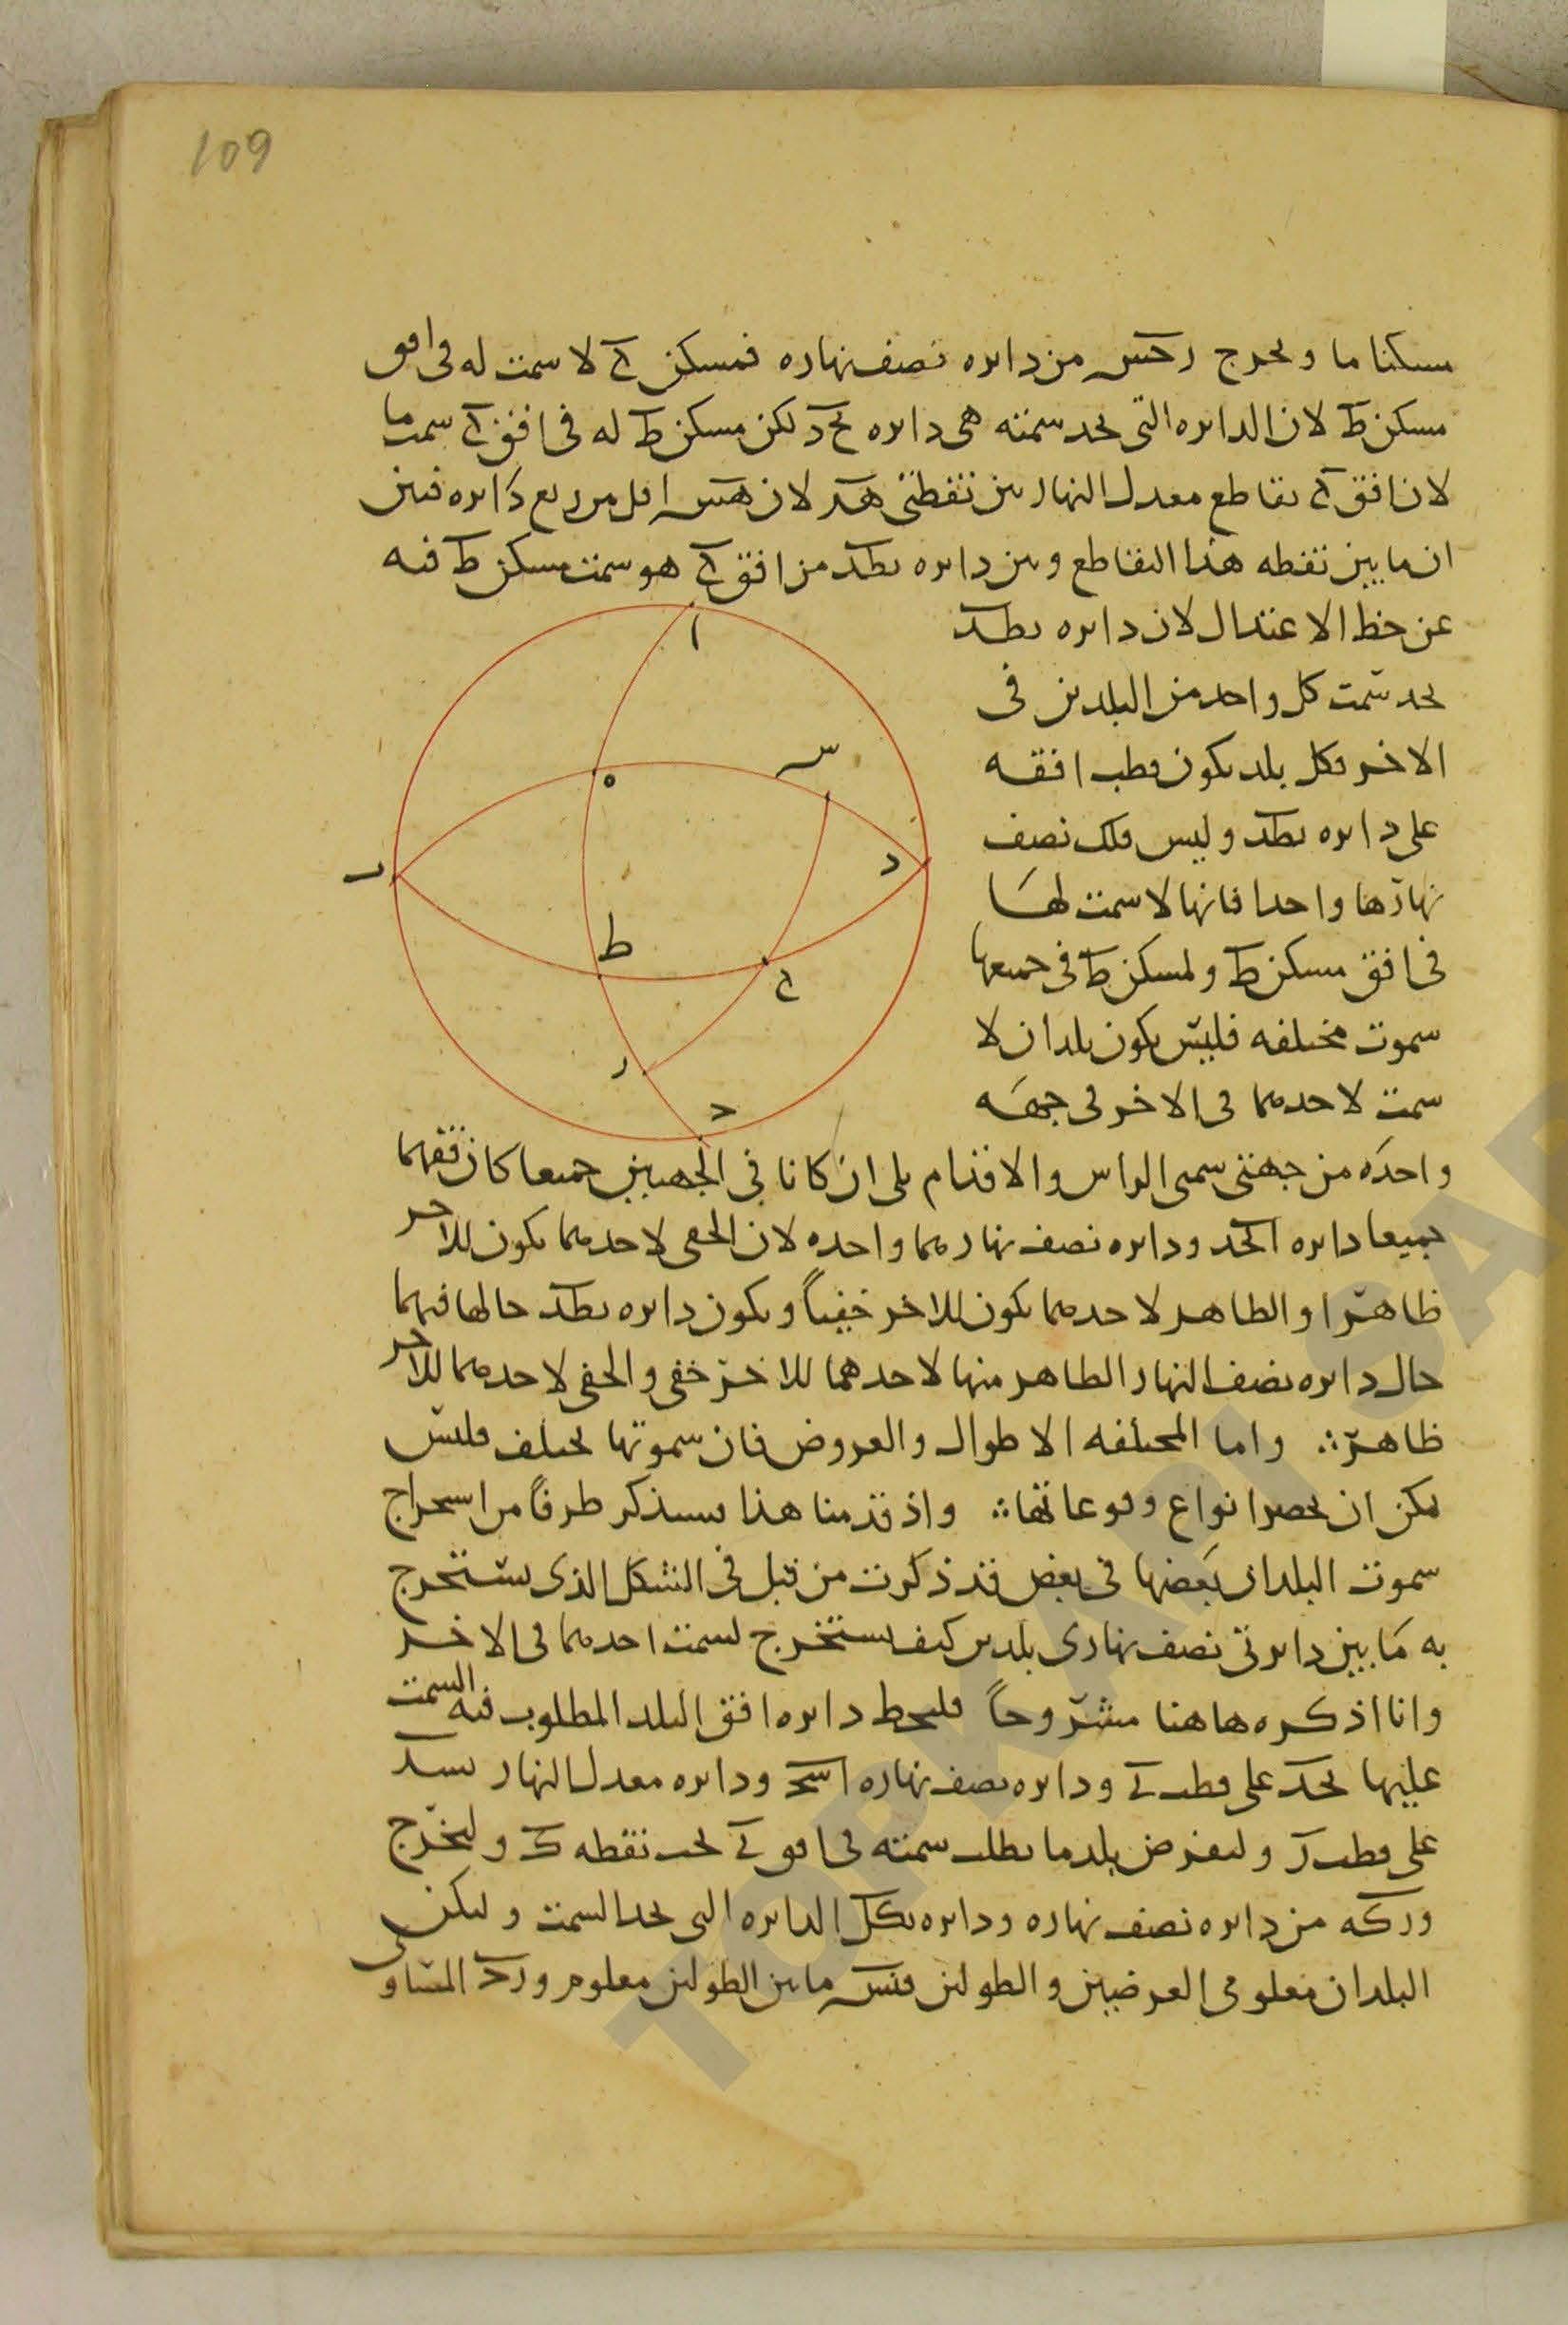 109
مسكنا ما ونخرج رحس من دايره نصف نهاره فمسكن ح لا سمت له فى افق
مسكن ط لان الدايره التى تحد سمته هى دايره بحد لكن مسكن ط له فى افق ح سمت ما
لان افق ح يقاطع معدل النهار بين نقطتى هد لان هس اقل من ربع دايره فبين
ان ما بين نقطه هذا التقاطع وبين دايره بطد من افق ح هو سمت مسكن ط فيه
عن خط الاعتدال لان دايره بطد
تحد سمت كل واحد من البلدين فى
الاخر وكل بلد يكون قطب افقه
على دايره بطد وليس فلك نصف
نهارها واحدا فانها لا سمت لها
فى افق مسكن ط ولمسكن ط فى جميعها
سموت مختلفه فليس يكون بلدان لا
سمت لاحدهما فى الاخر فى جهه
ا
ه
س
د
ب
ط
ح
ر
ج
واحده من جهتى سمتى الراس والاقدام بلى ان كانا فى الجهتين جميعا كان افقهما
جميعا دايره ابجد ودايره نصف نهارهما واحده لان الخفى لاحدهما يكون للاخر
ظاهرا والظاهر لاحدهما يكون للاخر خفياً ويكون دايره بطد حالها فيهما
حال دايره نصف النهار الظاهر منها لاحدهما للاخر خفى والخفى لاحدهما للاخر
ظاهر ؞ واما المختلفه الاطوال والعروض فان سموتها تختلف فليس
يمكن ان نحصر انواع وقوعاتها ؞ واذ قدمنا هذا فسنذكر طرفاً من استخراج
سموت البلدان بعضها فى بعض قد ذكرت من قبل فى الشكل الذى يستخرج
به ما بين دايرتى نصف نهارى بلدين كيف يستخرج لسمت احدهما فى الاخر
وانا اذكره هاهنا مشروحاً فليحط دايره افق البلد المطلوب فيه السمت
عليها ابجد على قطب ى ودايره نصف نهاره ايج ودايره معدل النهار بسد
على قطب ر وليفرض بلد ما يطلب سمته فى افق ى تحت نقطه ك وليخرج
وركه من دايره نصف نهاره ودايره بكل الدايره التى تحد السمت وليكن
البلدان معلومى العرضين والطولين فنس ما بين الطولين معلوم ورج المساوى